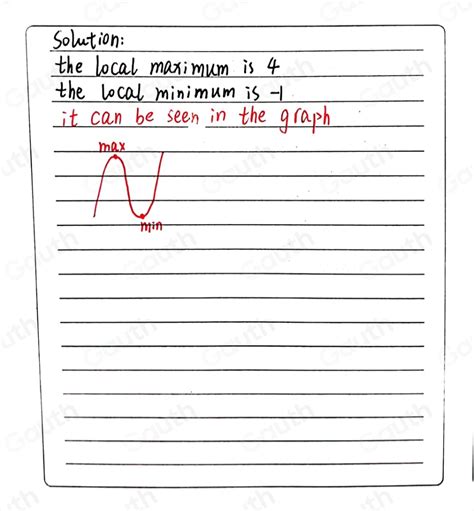 Solution:
the local maximum is 4
the local minimum is -1
it can be seen in the graph
max
min
Gauth